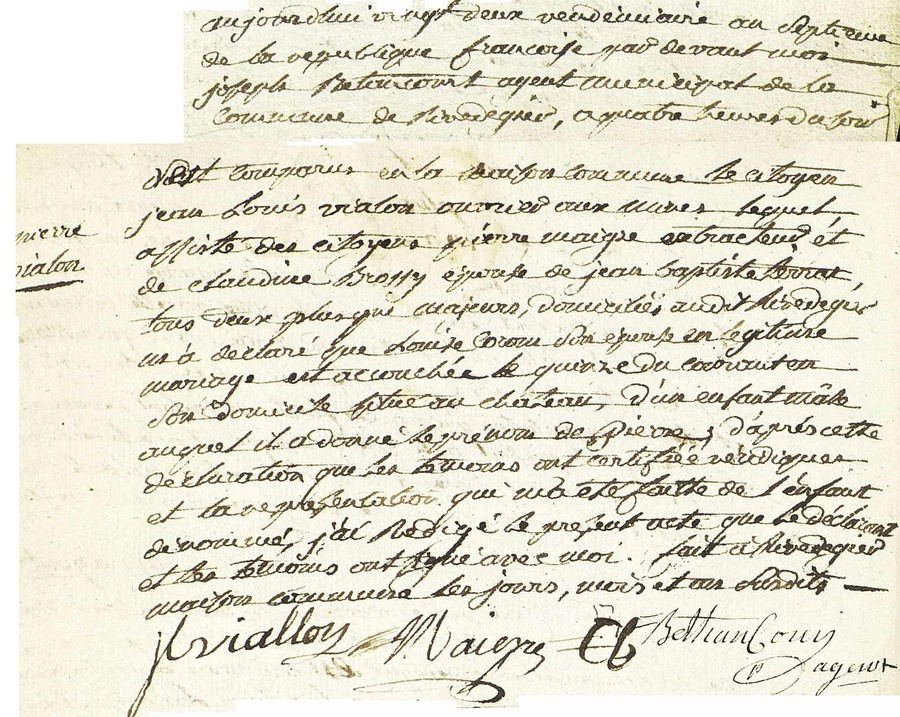 aujourdhui vingt deux vendemiaire an septieme
de la republique francoise par devant moi
joseph Betencourt agent municipal de la
commune de Rivedegier, a quatre heures du soir
est comparus en la maison commune le citoyen
jean Louis vialon ouvrier aux mines lequel
pierre
vialon
assisté des citoyens pierre maigre extracteur et
de claudine Brossy epouse de jean baptiste
tous deux plus que majeurs, domiciliés audit Rivedegier
m'a declaré que Louise Coron son epouse en legitime
mariage est accouchée le quinze du courant en
son domicile situé au chateau, d'un enfant mâle
auquel il a donné le prénom de Pierre, d'après cette
déclaration que les temoins ont certifiée véridique
et la représentation qui m'a été faitte de l'enfant
dénommé, j'ai Redigé le present acte que le déclarant
et les temoins ont signé avec moi. fait a Rivedegier
maison commune les jours, mois et an susdits
jl viallon Maigre CB Bethencourt
agent